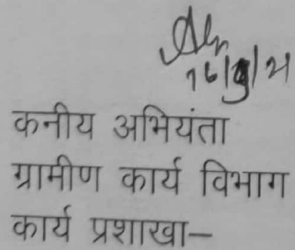 16/9/21
कनीय अभियंता
ग्रामीण कार्य विभाग
कार्य प्रशाखा–